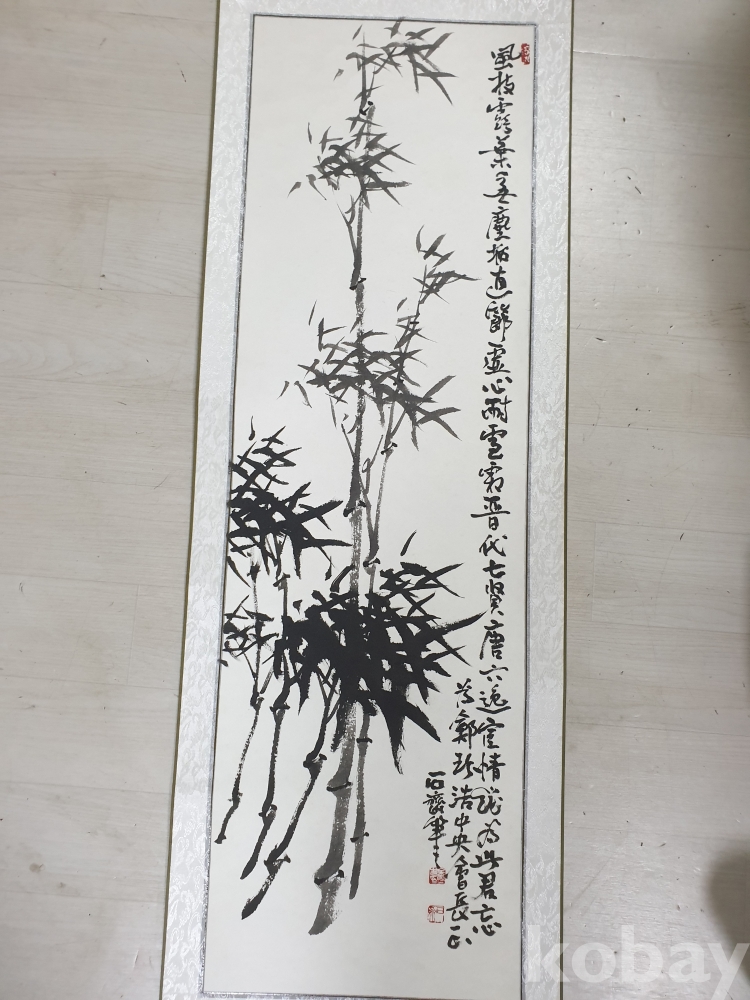 風枝露葉無塵垢直節虛心耐雪霜晉代七賢唐六逸宦情都為此君忘
為鄭 浩中央會長正
石齋筆
kobay